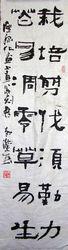 栽培剪伐須勤力
花易凋零草易生